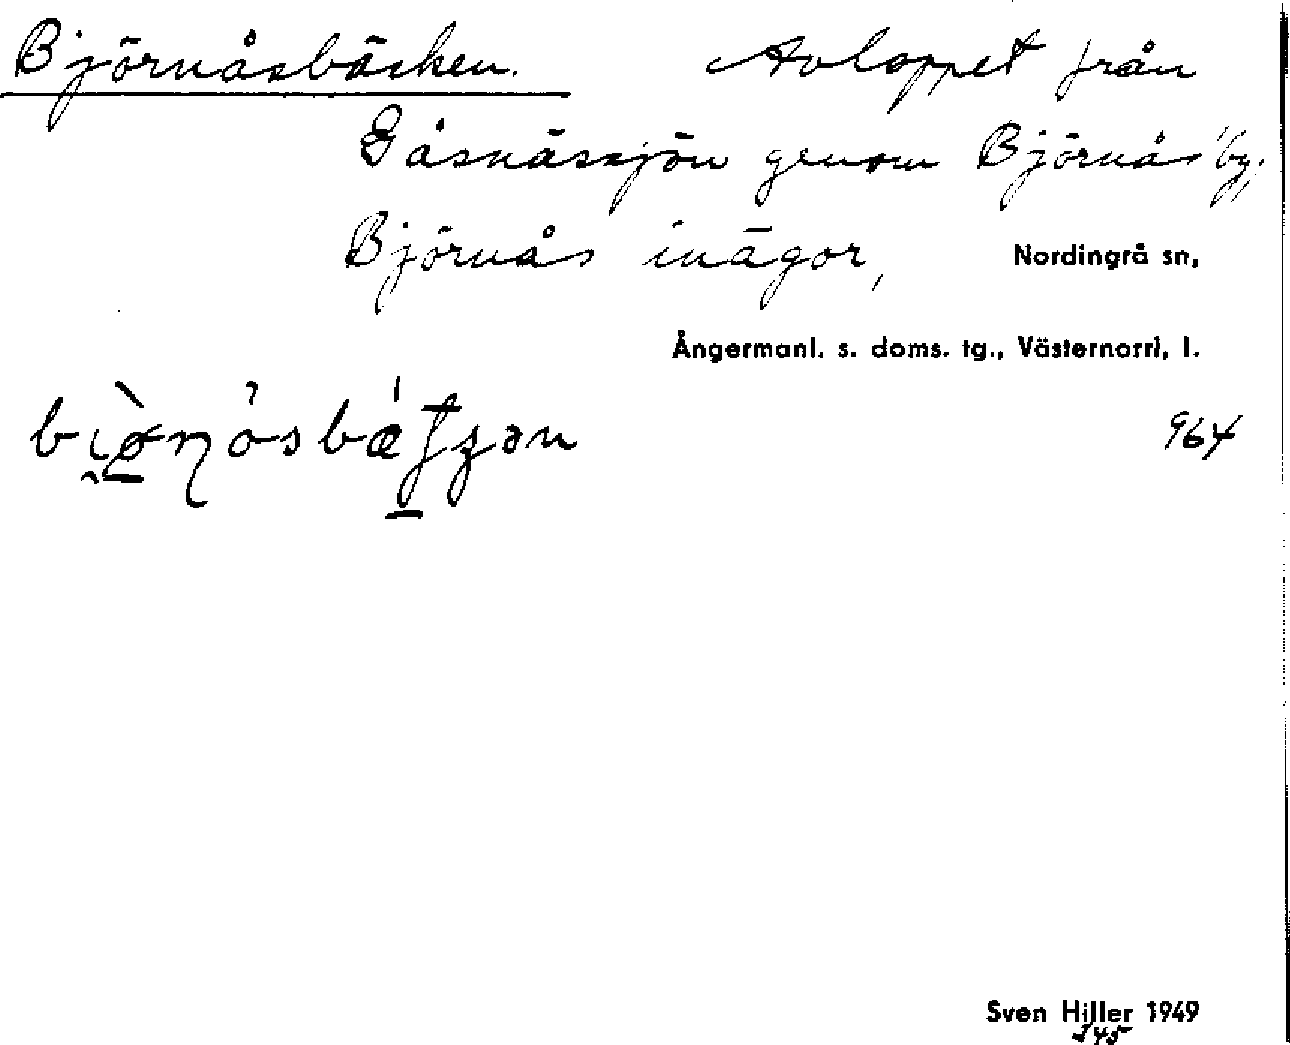 Björnåsbäcken. Avloppet från
Gåsnässjön genom Björnås by,
Björnås inägor, Nordingrå sn,
Ångermanl. s. doms. tg., Västernorrl. l.
964
Sven Hiller 1949